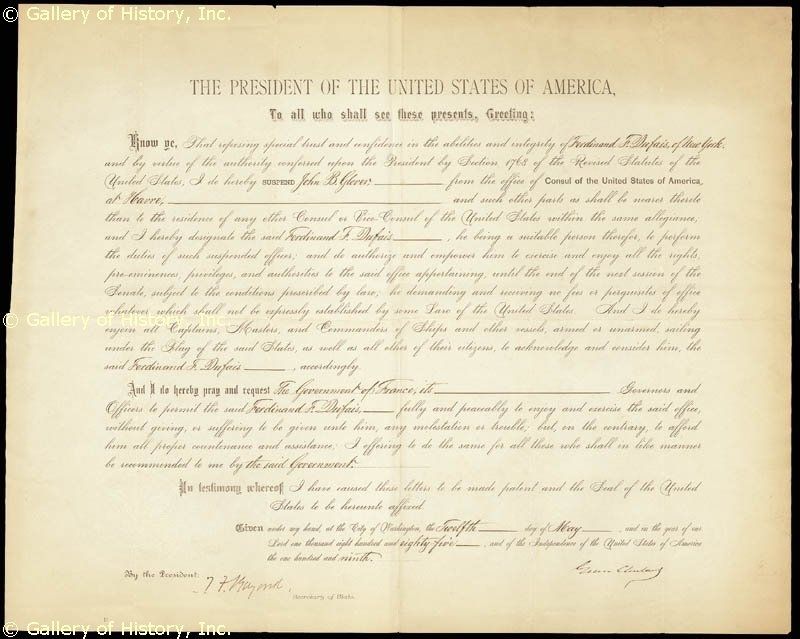 © Gallery of History, Inc.
THE PRESIDENT OF THE UNITED STATES OF AMERICA,
To all who shall see these presents, Greeting:
Know ye, That reposing special trust and confidence in the abilities and integrity of Ferdinand F. Dufais, of New York
and by virtue of the authority conferred upon the President by Section 1768 of the Revised Statutes of the
United States, I do hereby SUSPEND John B. Glover from the office of Consul of the United States of America,
at Havre, and such other parts as shall be nearer thereto
than to the residence of any other Consul or Vice-Consul of the United States within the same allegiance,
and I hereby designate the said Ferdinand F. Dufais, he being a suitable person therefor, to perform
the duties of such suspended officer; and do authorize and empower him to exercise and enjoy all the rights,
pre-eminences, privileges, and authorities to the said office appertaining, until the end of the next session of the
Senate, subject to the conditions prescribed by law; he demanding and receiving no fees or perquisites of office
whatever, which shall not be expressly established by some Law of the United States. And I do hereby
© Gallery of History, Inc.
enjoin all Captains, Masters, and Commanders of Ships and other vessels, armed or unarmed, sailing
under the Flag of the said States, as well as all other of their citizens, to acknowledge and consider him, the
said Ferdinand F. Dufais, accordingly.
And I do hereby pray and request The Government of France, its Governors and
Officers to permit the said Ferdinand F. Dufais, fully and peaceably to enjoy and exercise the said office,
without giving, or suffering to be given unto him, any molestation or trouble; but, on the contrary, to afford
him all proper countenance and assistance; I offering to do the same for all those who shall in like manner
be recommended to me by the said Government.
In testimony whereof I have caused these letters to be made patent and the Seal of the United
States to be hereunto affixed
Given under my hand, at the City of Washington, the Twelfth day of May, and in the year of our
Lord one thousand eight hundred and eighty five, and of the Independence of the United States of America
the one hundred and ninth.
Grover Cleveland
By the President:
T. F. Bayard,
Secretary of State.
© Gallery of History, Inc.